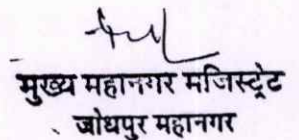 मुख्य महानगर मजिस्ट्रेट
जोधपुर महानगर